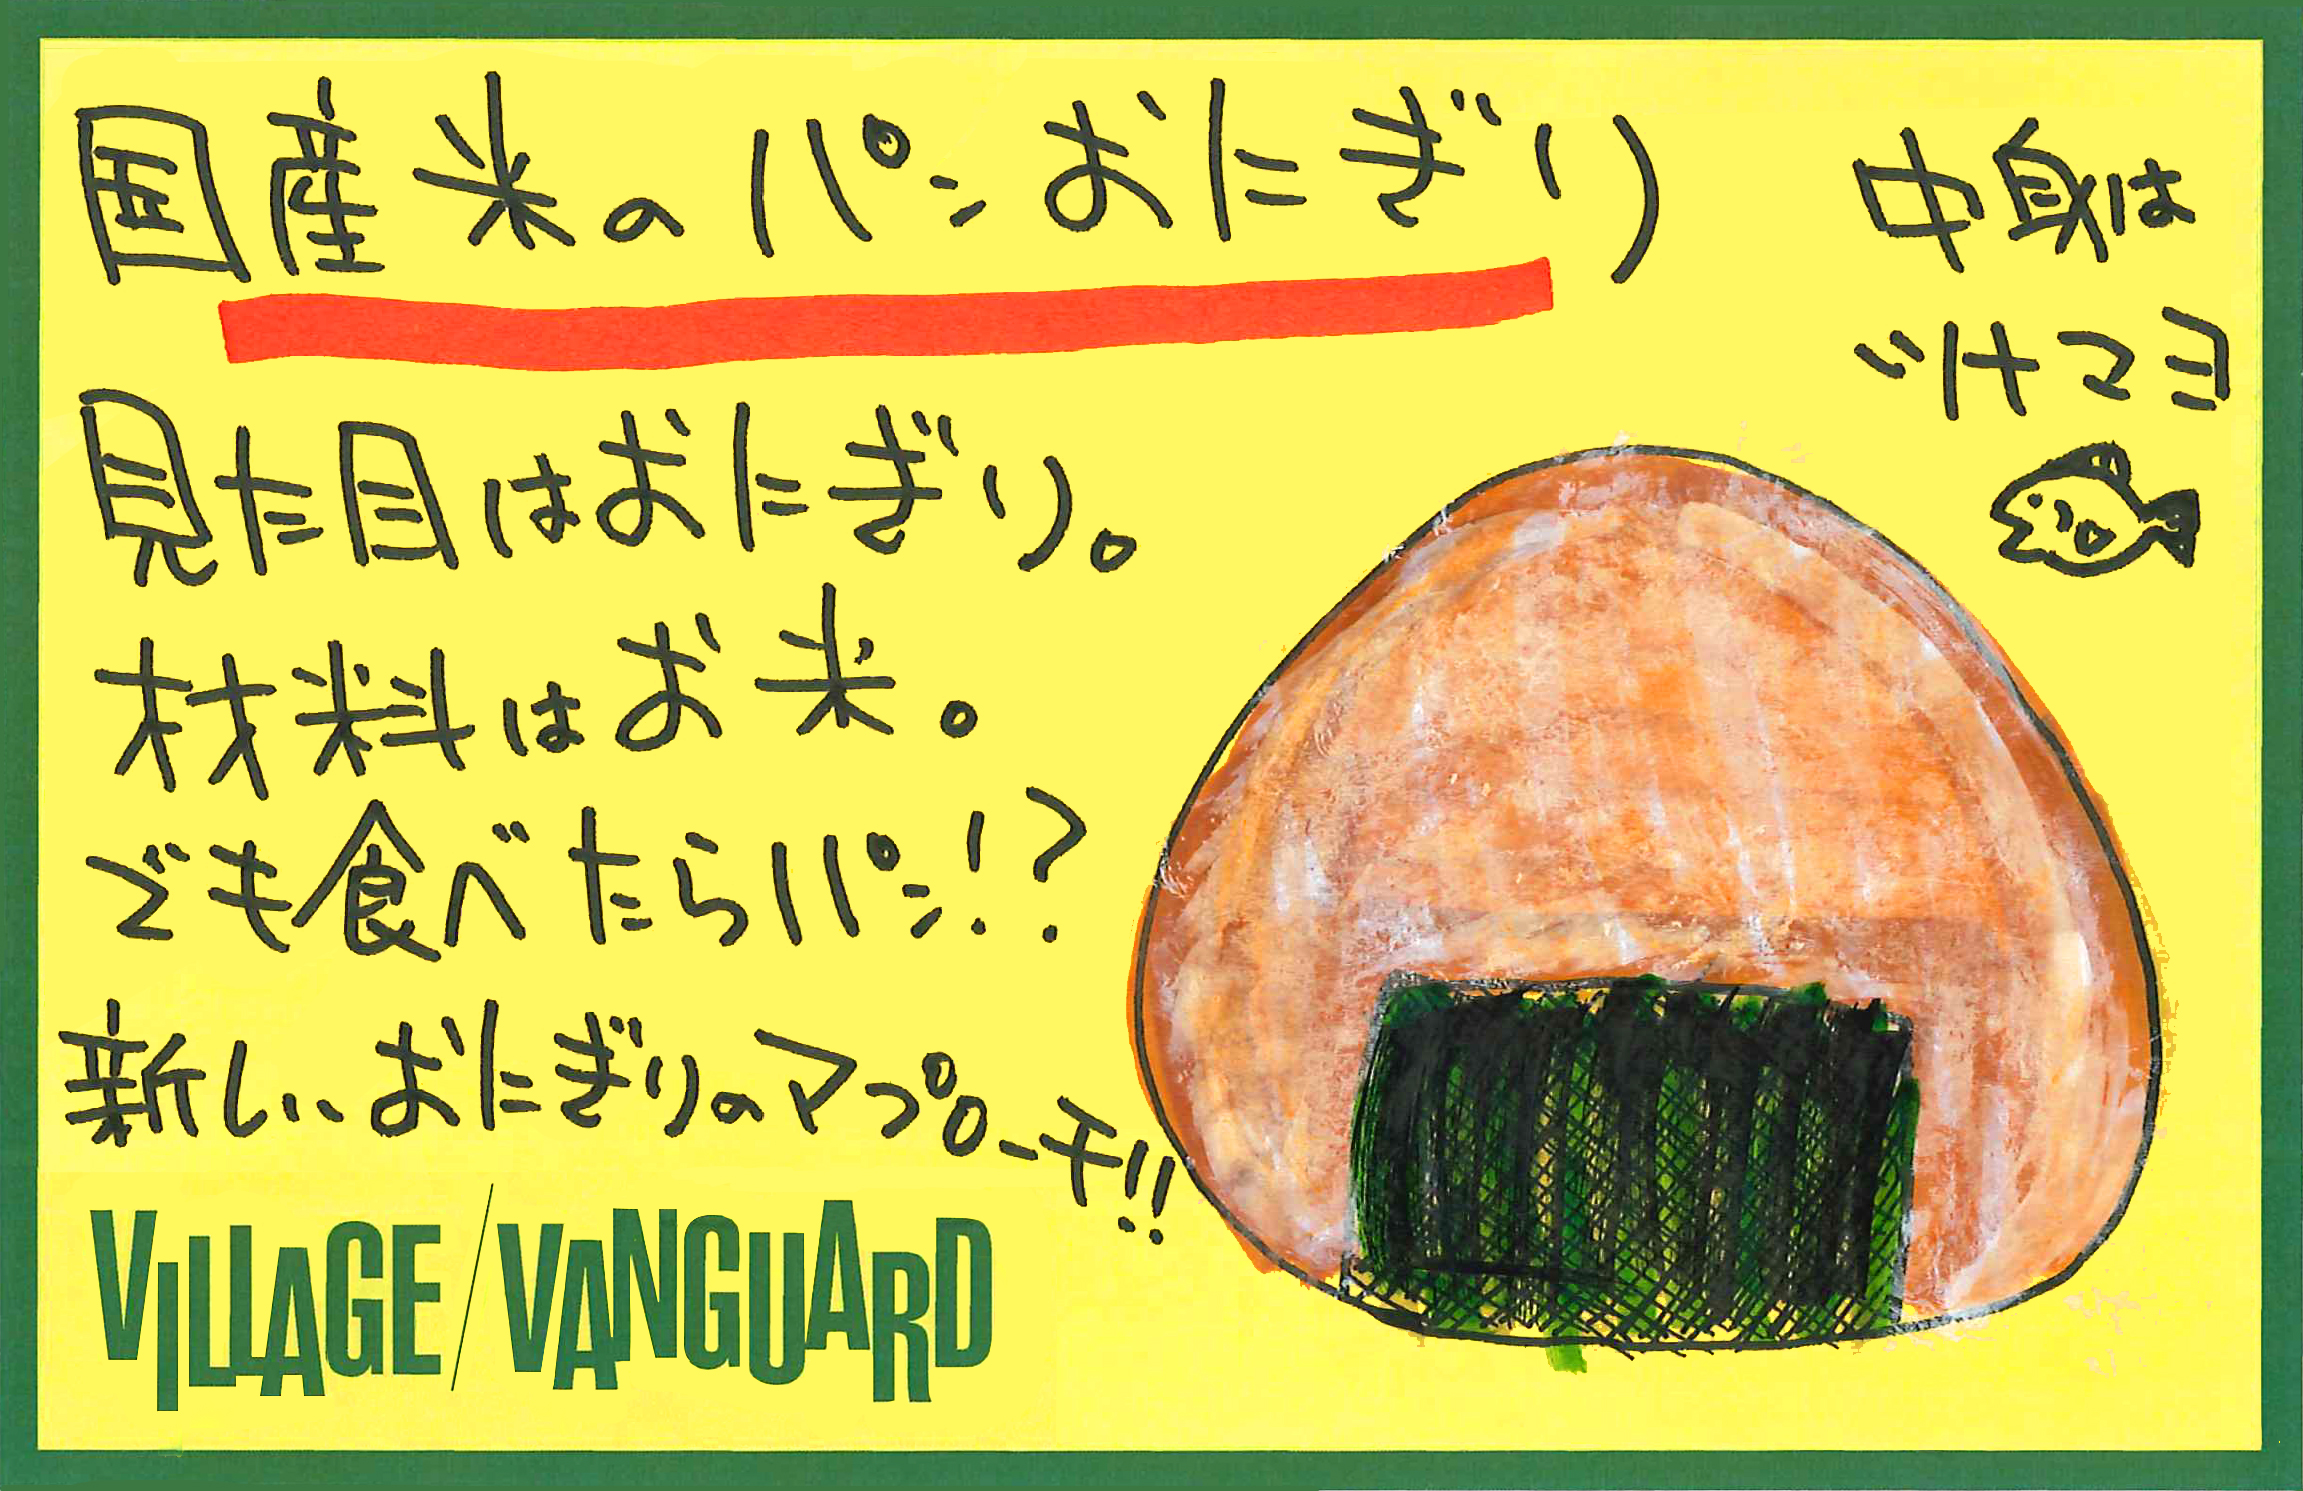 国産米のパンおにぎり
中身は
ツナマヨ
見た目はおにぎり。
材料はお米。
でも食べたらパン!?
新しいおにぎりのアプローチ!!
VILLAGE/VANGUARD